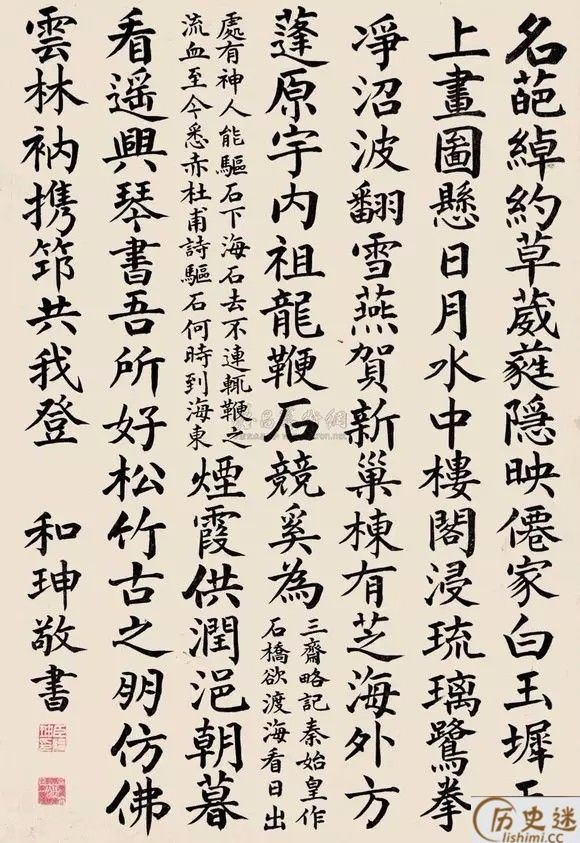 名葩綽約草葳蕤隱映僊家白玉墀
上畫圖懸日月水中樓閣浸琉璃鷺拳
凈沼波翻雪燕賀新巢棟有芝海外方
蓬原宇内祖龍鞭石競奚為
三齋略記秦始皇作
石橋欲渡海看日出
處有神人能驅石下海石去不連輒鞭之
流血至今悉赤杜甫詩驅石何時到海東
煙霞供潤浥朝暮
看遥興琴書吾所好松竹古之朋仿佛
雲林衲携筇共我登 和珅敬書
历史迷
lishimi.cc